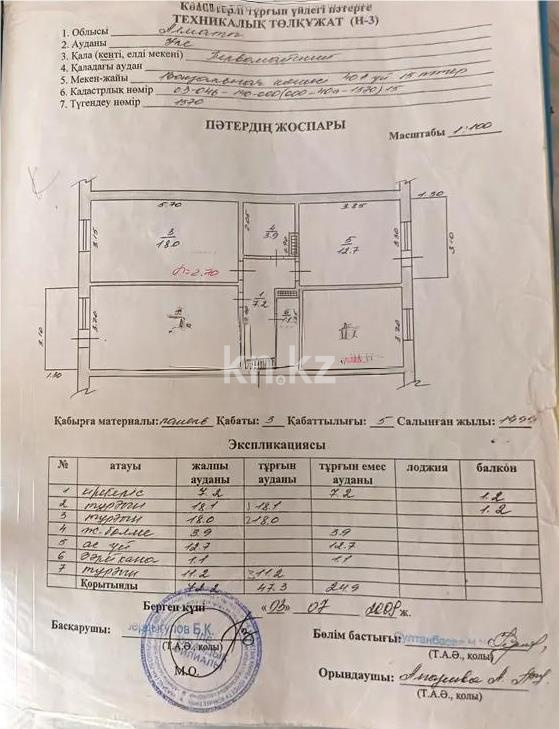 Көп пәтерлі тұрғын үйдегі пәтерге
ТЕХНИКАЛЫҚ ТӨЛҚҰЖАТ (Н-3)
1. Облысы Алматы
2. Ауданы Іле
3. Қала (кенті, елді мекені) Первомайский
4. Қаладағы аудан
5. Мекен-жайы Вокзальная көшесі 40а үй 15 пәтер
6. Кадастрлық нөмір 03-046-140-000(000-40а-1570)15
7. Түгендеу нөмір 1570
ПӘТЕРДІҢ ЖОСПАРЫ
Масштабы 1:100
1.30
5.70
3.85
3.15
3
18.0
2.05
4
3.9
5
12.7
3.30
3.10
h=2.70
1
7.2
6
1.1
3.10
3.20
3.20
1.10
kn.kz
Қабырға материалы: панель Қабаты: 3 Қабаттылығы: 5 Салынған жылы:
Экспликациясы
№ атауы жалпы ауданы тұрғын ауданы тұрғын емес ауданы лоджия балкон
1 кіреберіс 7.2 7.2 1.2
2 тұрғын 18.1 18.1 1.2
3 тұрғын 18.0 18.0
4 ж.бөлме 3.9 3.9
5 ас үй 12.7 12.7
6 дәретхана 1.1 1.1
7 тұрғын 11.2 11.2
Қорытынды 47.3 24.9
Берген күні «03» 07 2008 ж.
Басқарушы:
(Т.А.Ә., қолы)
М.О.
Бөлім бастығы:
(Т.А.Ә., қолы)
Орындаушы:
(Т.А.Ә., қолы)